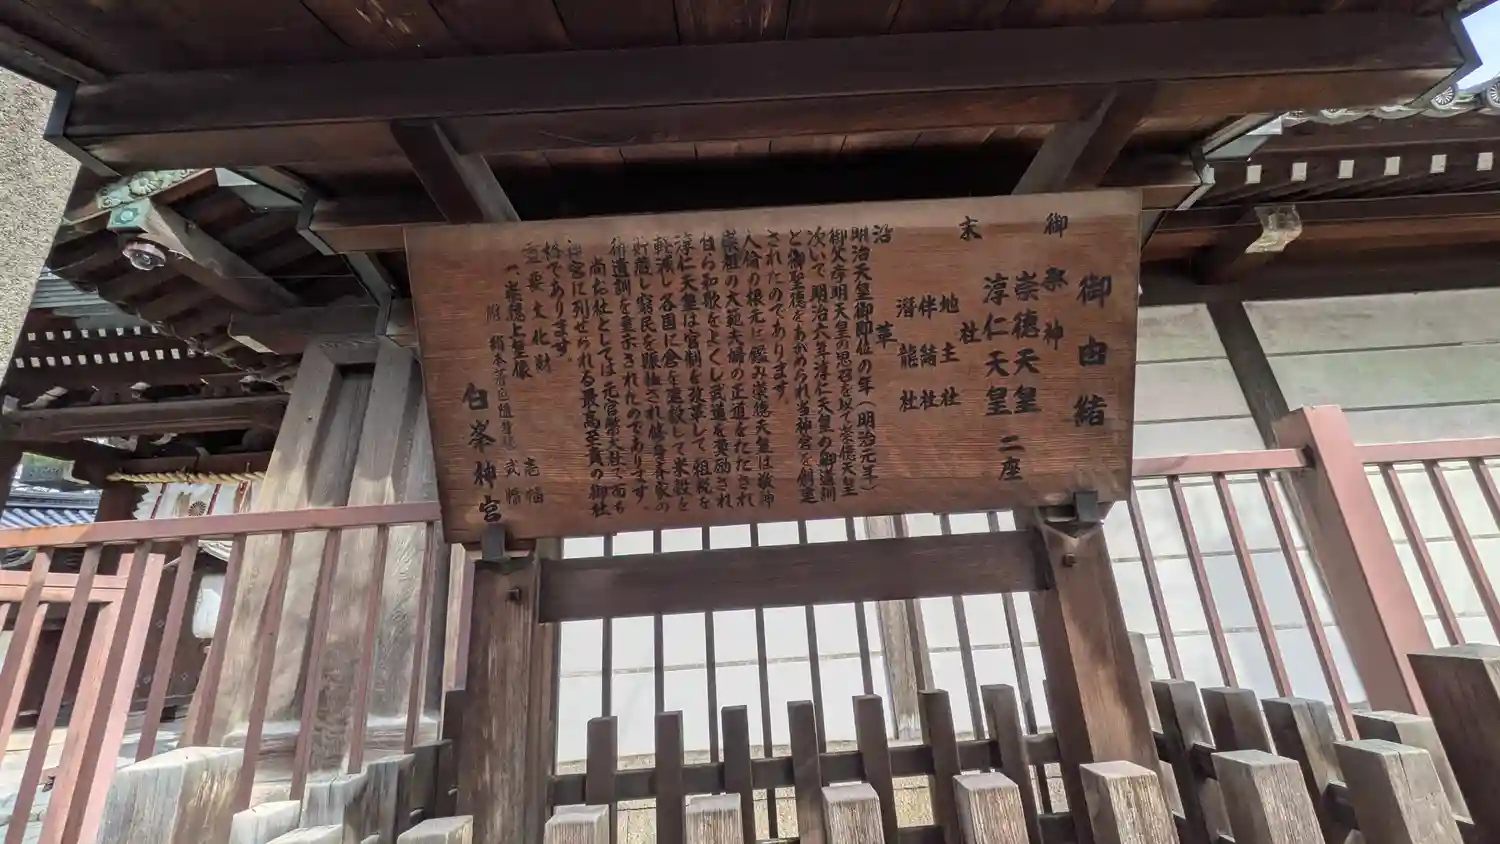 御由緒
御祭神
崇徳天皇
淳仁天皇 二座
末社
地主社
伴緒社
潜龍社
沿革
明治天皇御即位の年（明治元年）
御父孝明天皇の思召を以て崇徳天皇
次いで明治六年淳仁天皇の御遺訓
と御聖徳をあがめられ当神宮を創建
されたのであります
人倫の根元に鑑み崇徳天皇は敬神
崇祖の大範夫婦の正道をたたされ
自ら和歌をよくし武道を奨励され
淳仁天皇は官制を改革して租税を
軽減し各国に倉を建設して米穀を
貯蔵し窮民を賑恤され修身斉家の
御遺訓を垂示されたのであります。
尚お社としては元官幣大社で而も
神宮に列せられる最高至貴の御社
格であります
重要文化財
一、崇徳上皇像 壱幅
附 絹本著色随身像 弐幅
白峯神宮